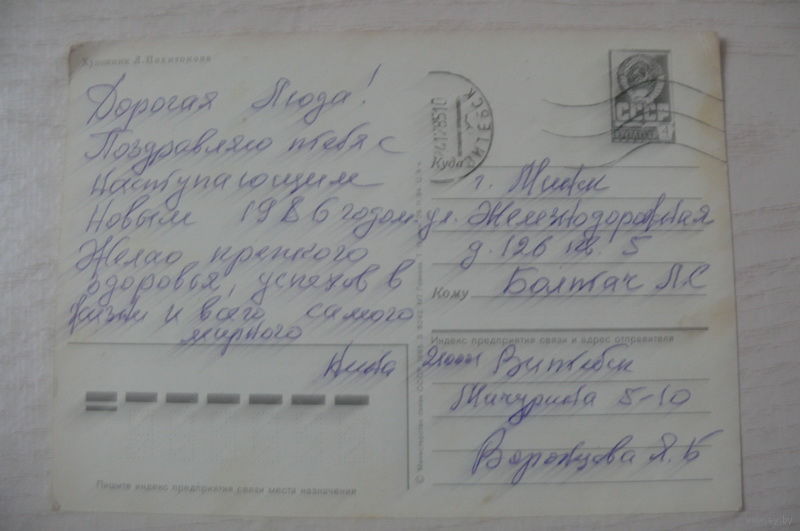 Художник Л.
Дорогая Люда!
Поздравляю тебя с
наступающим
Новым 1986 годом
Желаю крепкого
здоровья, успехов в
жизни и всего самого
мирного
СССР
4
Куда
г. Минск
ул. Железнодорожная
д. 126 кв. 5
Кому
Болтач Л.С
Индекс предприятия связи и адрес отправителя
Витебск
Мичурина 5-10
Воронцова Л.Б
Пишите индекс предприятия связи места назначения